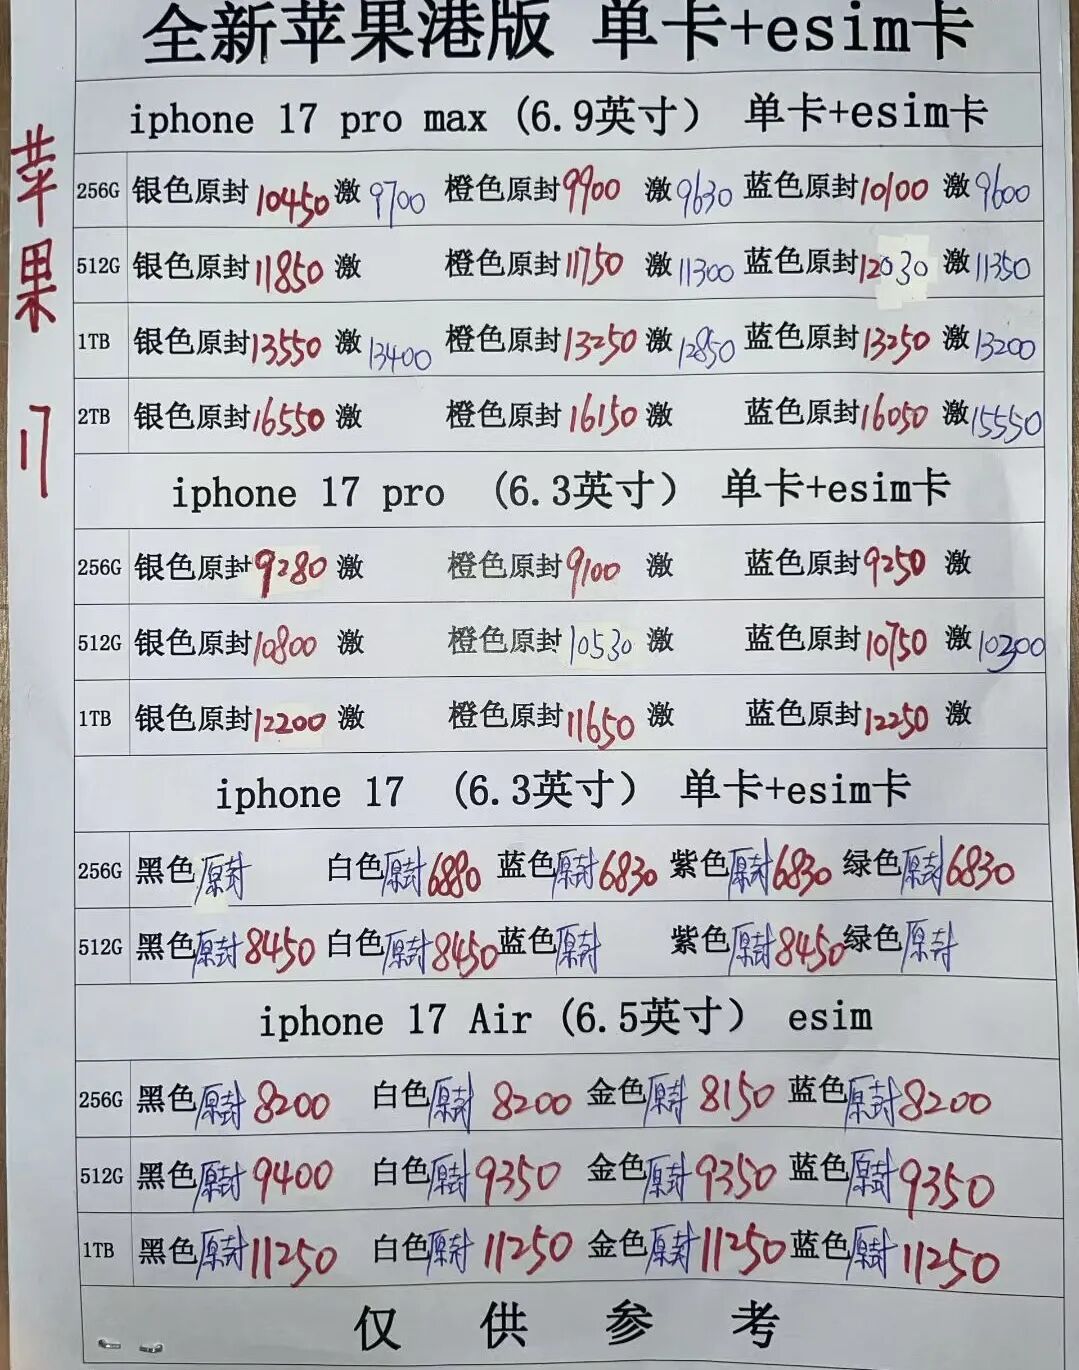 全新苹果港版 单卡+esim卡
苹果17
iphone 17 pro max (6.9英寸) 单卡+esim卡
256G 银色原封10450激9700 橙色原封9900 激9630 蓝色原封10100 激9600
512G 银色原封11850激 橙色原封11750 激11300 蓝色原封12030 激11350
1TB 银色原封13550 激13400 橙色原封13250激12850 蓝色原封13250激13200
2TB 银色原封16550激 橙色原封16150激 蓝色原封16050 激15550
iphone 17 pro (6.3英寸) 单卡+esim卡
256G 银色原封9280激 橙色原封9100 激 蓝色原封9250 激
512G 银色原封10800 激 橙色原封10530激 蓝色原封10750 激10300
1TB 银色原封12200激 橙色原封11650激 蓝色原封12250 激
iphone 17 (6.3英寸) 单卡+esim卡
256G 黑色原封 白色原封6880 蓝色原封6830 紫色原封6830 绿色原封6830
512G 黑色原封8450 白色原封8450 蓝色原封 紫色原封8450 绿色原封
iphone 17 Air (6.5英寸) esim
256G 黑色原封8200 白色原封8200 金色原封8150 蓝色原封8200
512G 黑色原封9400 白色原封9350 金色原封9350 蓝色原封9350
1TB 黑色原封11250 白色原封11250 金色原封11250 蓝色原封11250
仅供参考